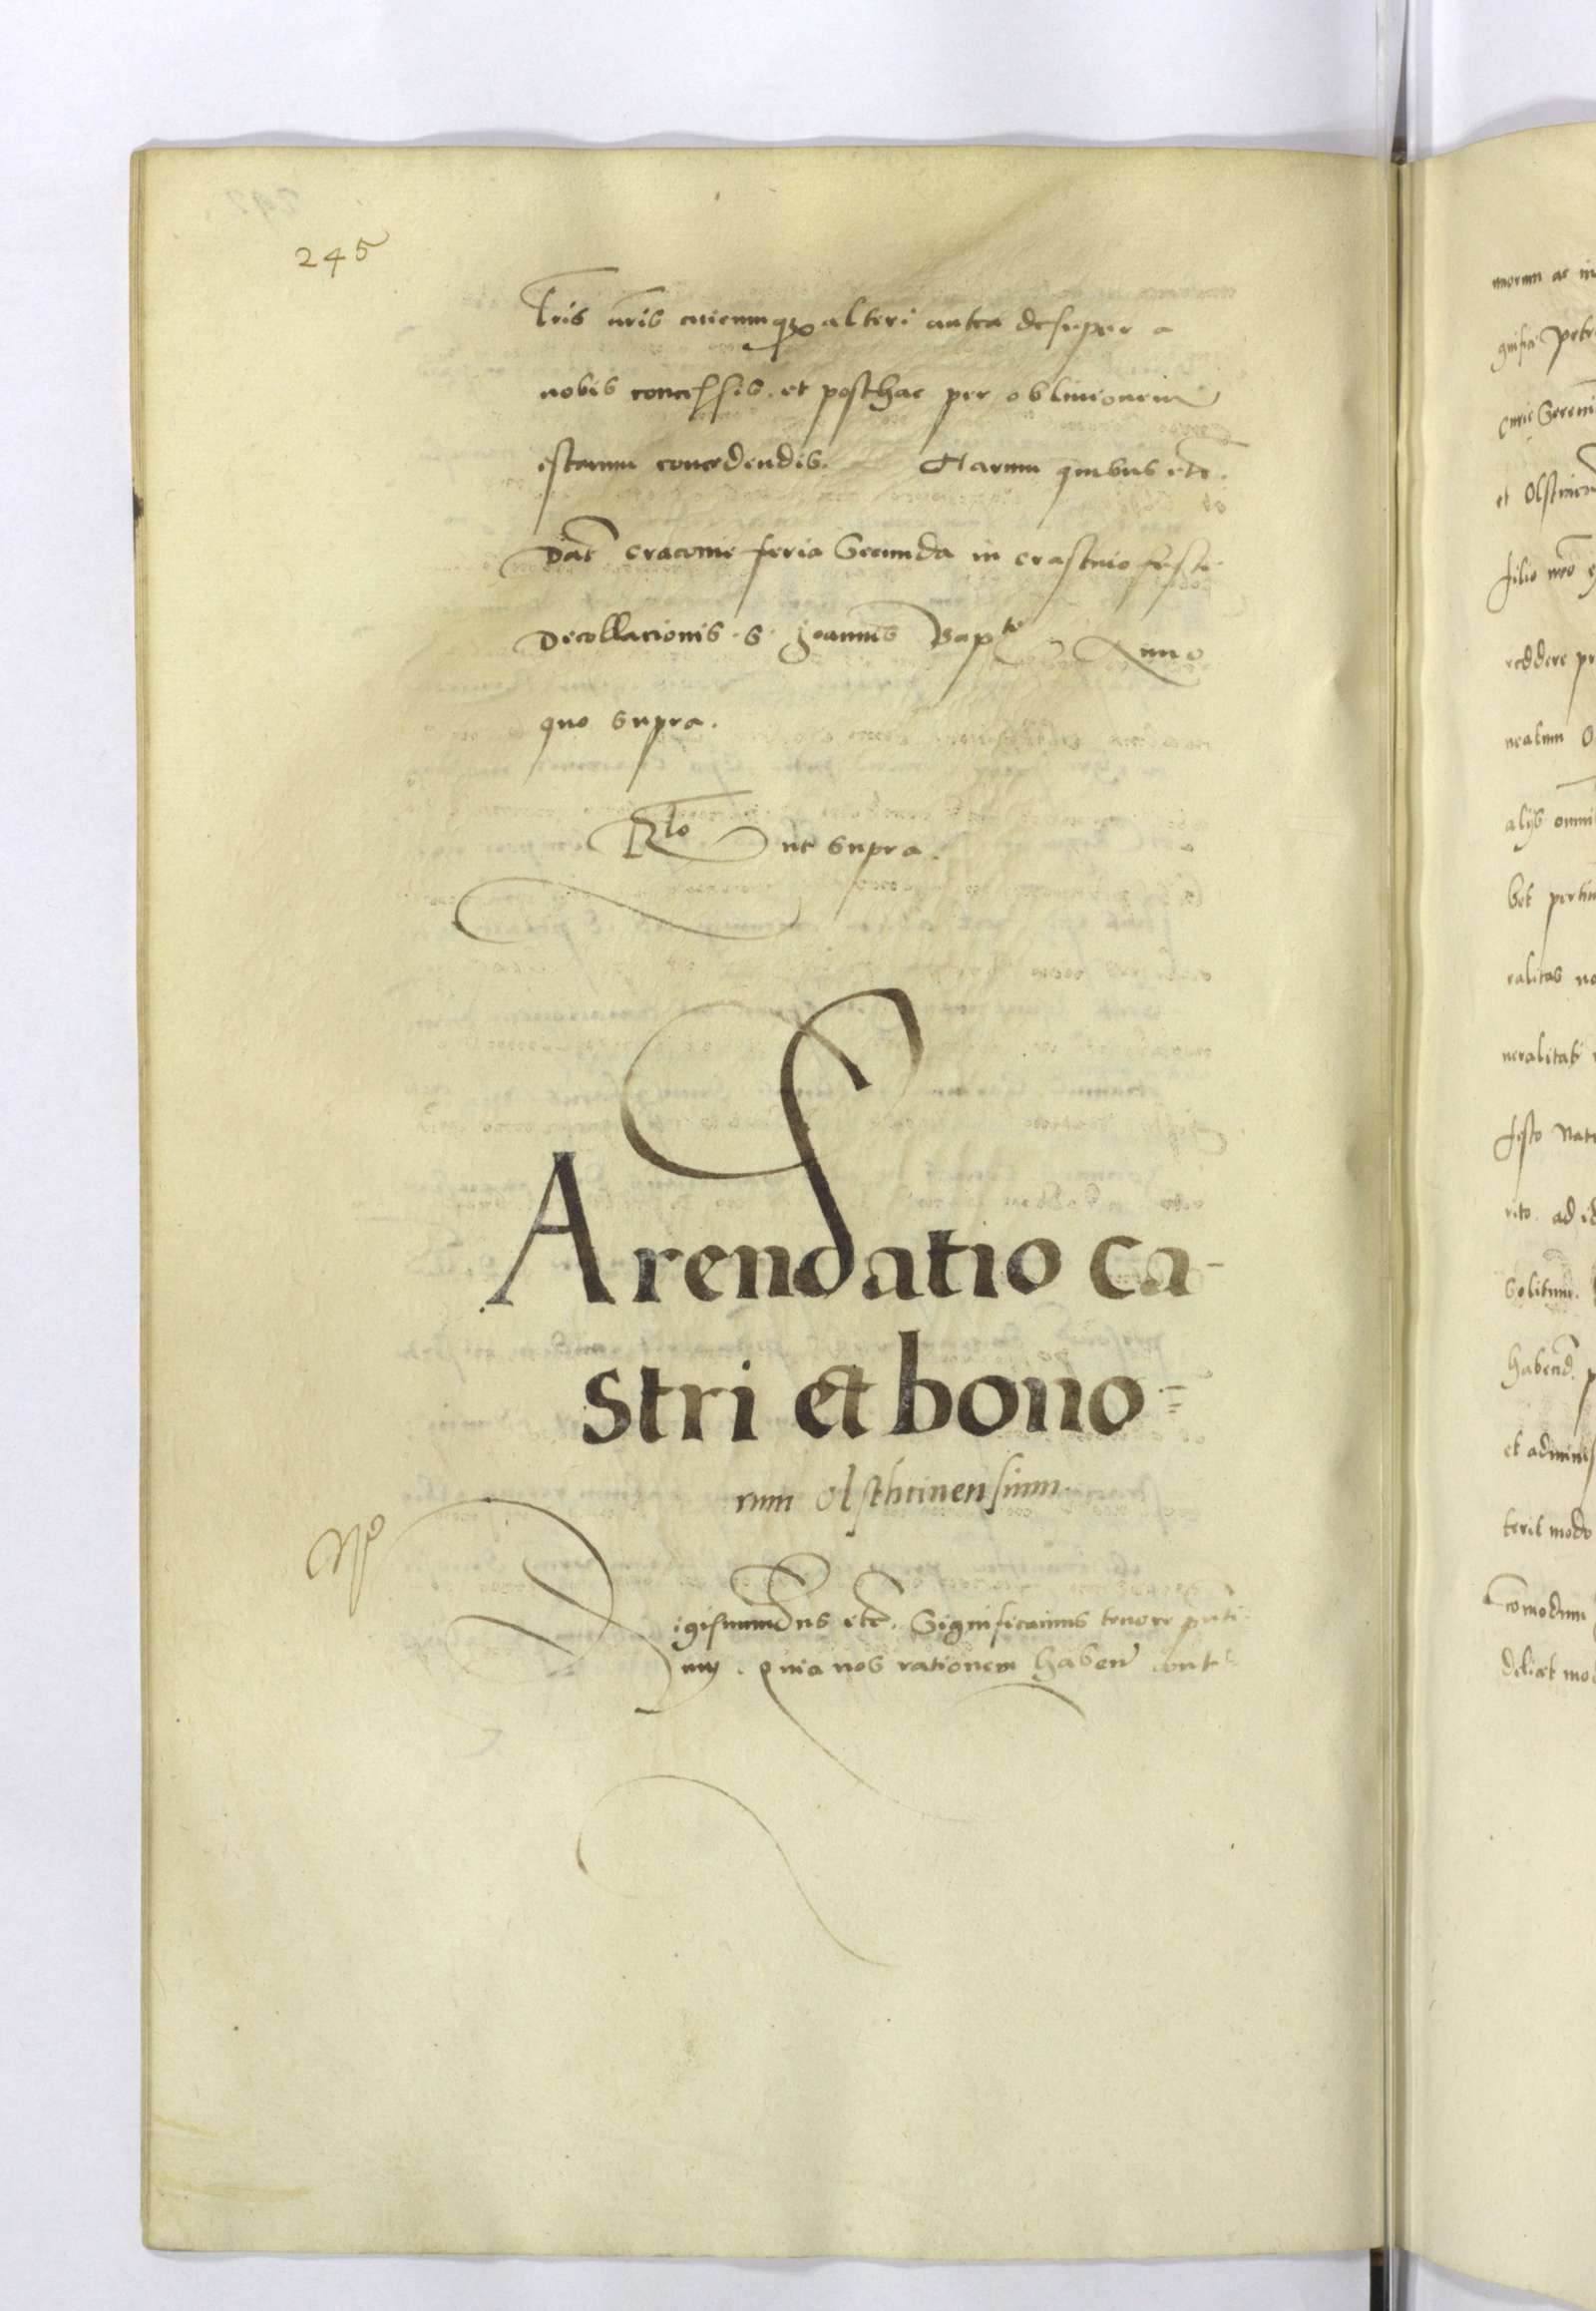 245
Lris nris cuicumqz alteri antea desuper a
nobis concessis. et posthac per oblivionem
estarum concedendis. Harum quibus etc.
Dat Cracovie feria Secunda in crastino festi
Decollacionis .S. Joannis Bapte Anno
quo supra.
Rlo ut supra.
Arendatio ca-
stri et bono=
rum Olsthinensium.
Sigismundus etc. Significamus tenore pnti
um. Quia nos rationem haben
morum ac in
gnifici Petr
Curie Sereni
et Olstinen
filio nro
reddere pr
nealum O
alijs omni
bet pertin
ralitas no
neralitati
festo Nat
rito ad id
Solitum.
habend. p
et adminis
terit modo
comodum